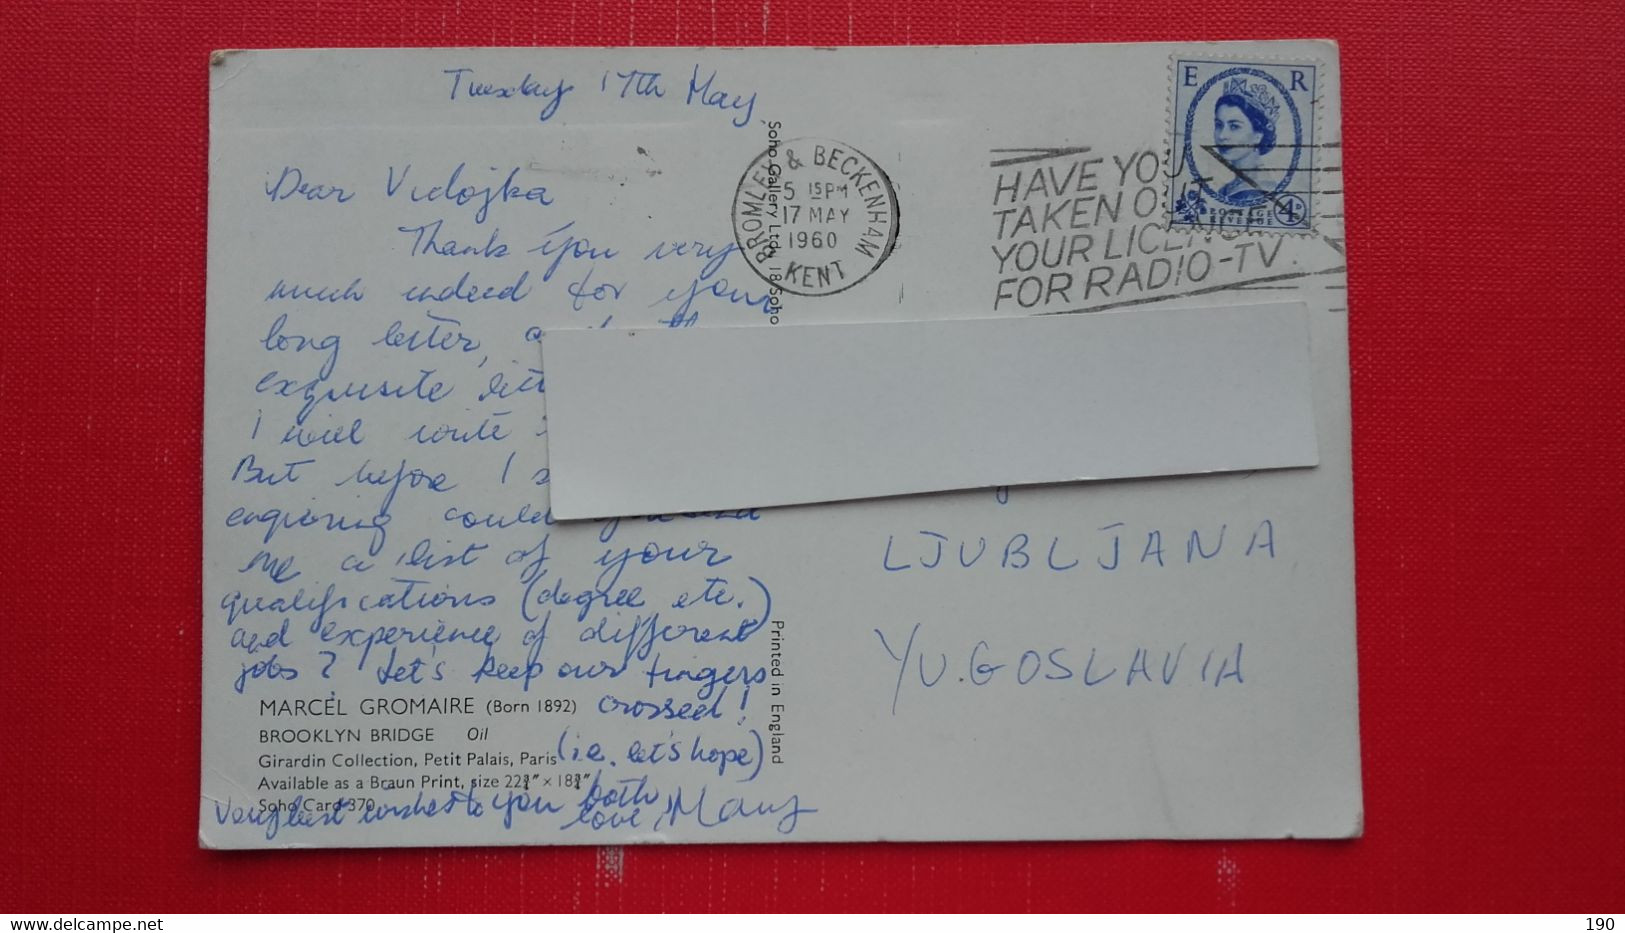 Tuesday 17th May
Dear Vidojka
Thank you very
much indeed for your
long letter,
exquisite
I will write
But before I
engraving could you send
me a list of your
qualifications (degree etc.)
and experience of different
jobs? Let's keep our fingers
crossed!
(i.e. let's hope)
Very best wishes to you both
love, Mary
MARCEL GROMAIRE (Born 1892)
BROOKLYN BRIDGE Oil
Girardin Collection, Petit Palais, Paris
Available as a Braun Print, size 22¾" × 18¾"
Soho Card 370
Soho Gallery Ltd., 18 Soho
Printed in England
BROMLEY & BECKENHAM
5 15 PM
17 MAY
1960
KENT
HAVE YOU
TAKEN OUT
YOUR LICENCE
FOR RADIO-TV
E R
POSTAGE
REVENUE
4D
LJUBLJANA
YUGOSLAVIA
190